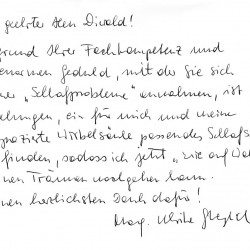 geehrter Herr Diwald!
grund Ihrer Fachkompetenz und
Geduld, mit der Sie sich
"Schlafprobleme" annahmen, ist
ein für mich und meine
Wirbelsäule passendes Schlafs
finden, sodass ich jetzt "wie auf Wol
Träumen nachgehen kann.
nen herzlichsten Dank dafür!
Mag. Ulrike